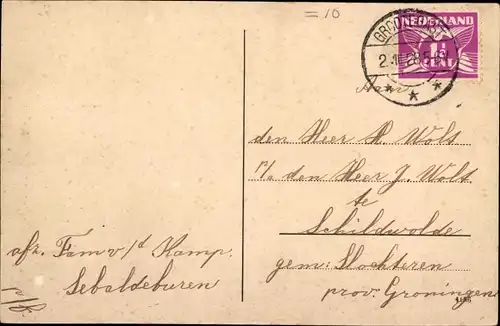 = 10
NEDERLAND
1½
CENT
Aan
den Heer K. Wolt
p/a den Heer J. Wolt
te
Schildwolde
gem: Slochteren
prov. Groningen
afz. Fam v/d Kamp.
Sebaldeburen